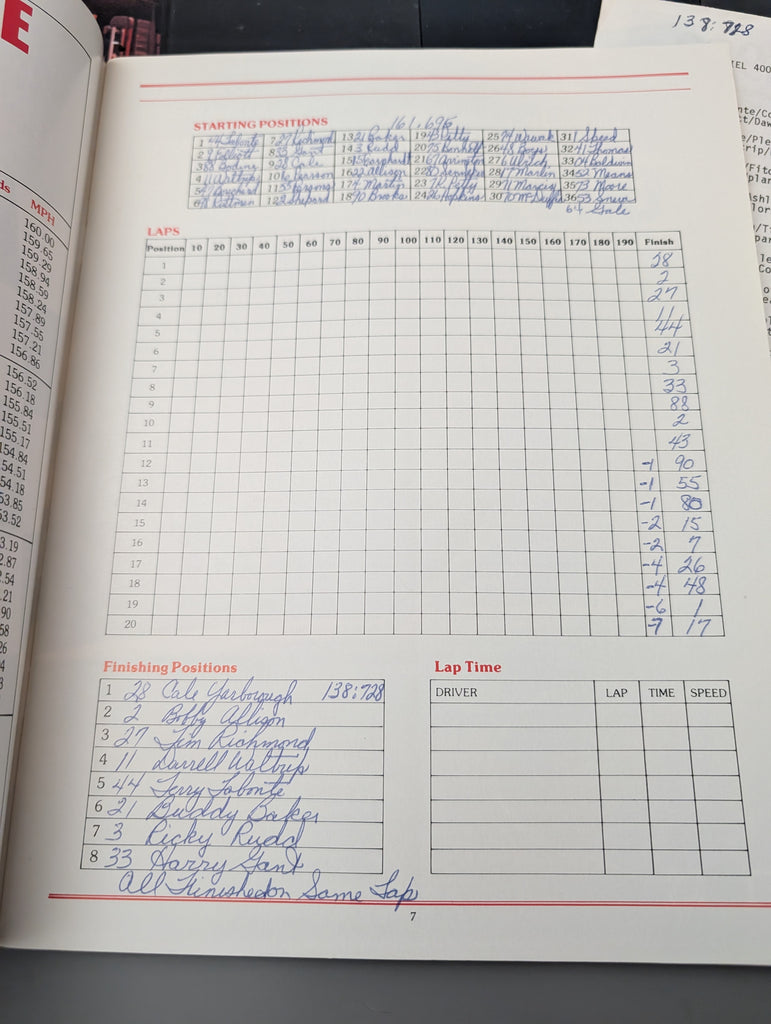 E
138:728
IEL 400
MPH
160.00
159.65
159.29
158.94
158.59
158.24
157.89
157.55
157.21
156.86
156.52
156.18
155.84
155.51
155.17
154.84
154.51
154.18
53.85
53.52
3.19
2.87
2.54
.21
90
58
26
STARTING POSITIONS 161.696
1 44 Labonte 7 27 Richmond 13 21 Baker 19 43 Petty 25 74 Wawak 31 1 Speed
8 33 Gant 14 3 Rudd 20 75 Bonnett 26 48 Boys 32 41 Thomas
9 28 Cale 15 15 Earnhardt 21 67 Arrington 27 6 Ulrich 33 04 Baldwin
4 11 Waltrip 10 16 Pearson 16 22 Allison 28 17 Marlin 34 52 Means
11 55 Parsons 17 4 Martin 23 7 K. Petty 29 71 Marcis 35 73 Moore
12 2 Shepard 18 90 Brooks 24 26 Hopkins 30 70 McDuffie 36
64 Gale
LAPS
Position 10 20 30 40 50 60 70 80 90 100 110 120 130 140 150 160 170 180 190 Finish
1 28
2 2
3 27
4 11
5 44
6 21
7 3
8 33
9 88
10 2
11 43
12 -1 90
13 -1 55
14 -1 80
15 -2 15
16 -2 7
17 -4 26
18 -4 48
19 -6 1
20 -7 17
Finishing Positions
1 28 Cale Yarborough 138:728
2 2 Bobby Allison
3 27 Tim Richmond
4 11 Darrell Waltrip
5 44 Terry Labonte
6 21 Buddy Baker
7 3 Ricky Rudd
8 33 Harry Gant
All Finished on Same Lap
Lap Time
DRIVER LAP TIME SPEED
7